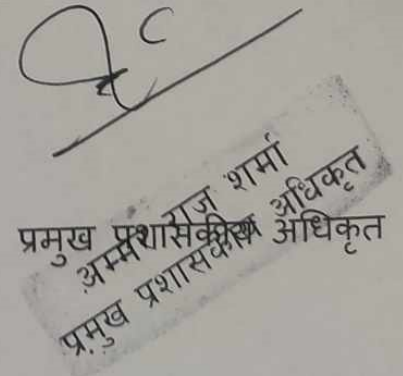 प्रमुख प्रशासकीय अधिकृत
राज शर्मा
प्रमुख प्रशासकीय अधिकृत